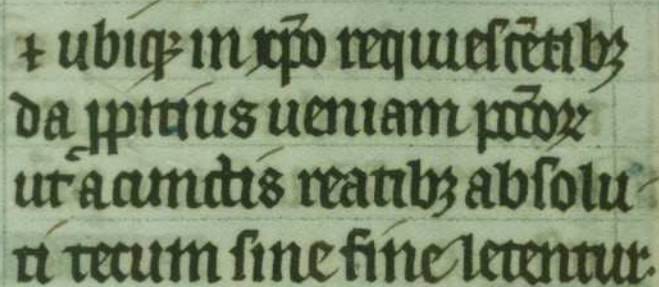 ⁊ ubiqꝫ in xp̄o requiesc̄ētibꝫ
da ꝓpitius ueniam pccōꝝ
ut a cunctis reatibꝫ absolu
ti tecum sine fine letentur.